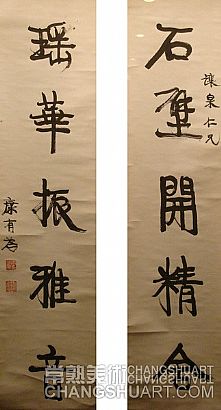 泉仁兄
石壁開精舍
瑤華振雅音
康有為
常熟美術 CHANGSHUART
CHANGSHUART.COM